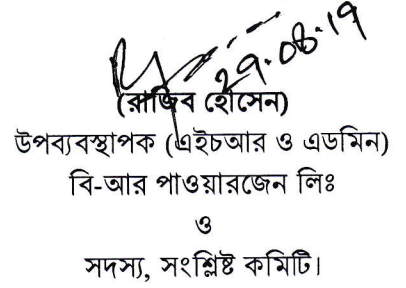 29.08.19
(রাজিব হোসেন)
উপব্যবস্থাপক (এইচআর ও এডমিন)
বি-আর পাওয়ারজেন লিঃ
ও
সদস্য, সংশ্লিষ্ট কমিটি।